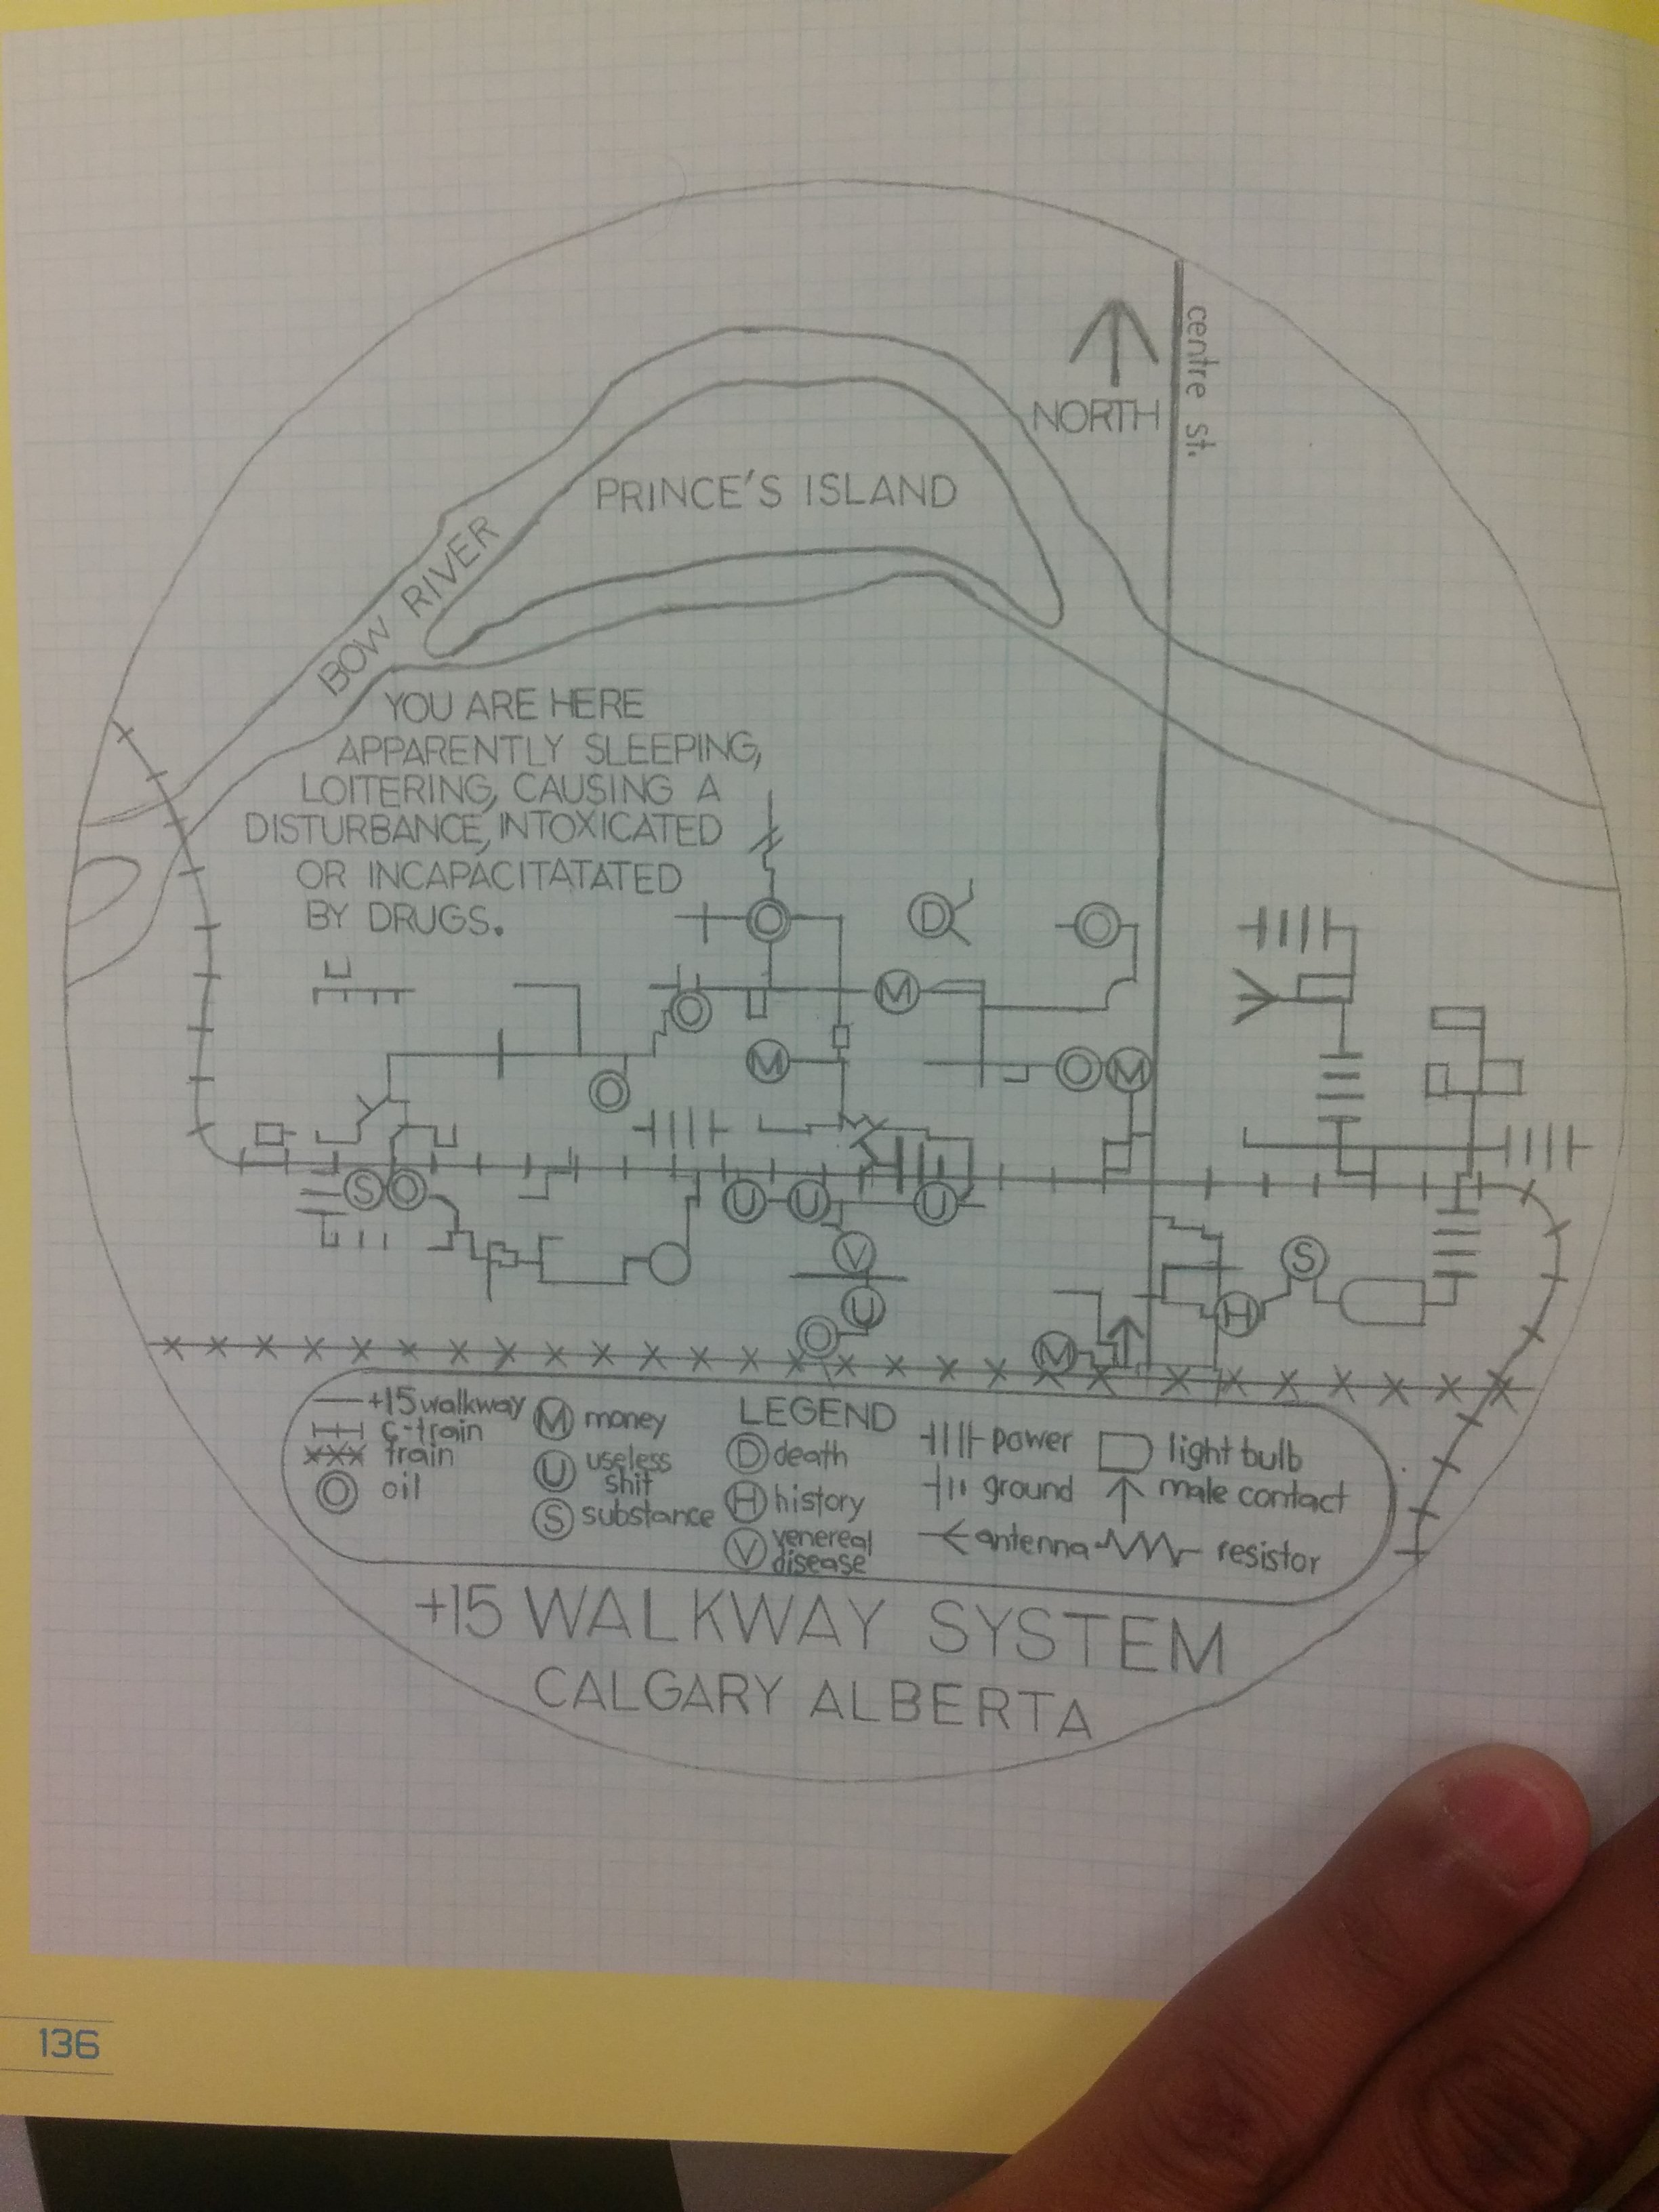 centre st.
NORTH
PRINCE'S ISLAND
BOW RIVER
YOU ARE HERE
APPARENTLY SLEEPING,
LOITERING, CAUSING A
DISTURBANCE, INTOXICATED
OR INCAPACITATATED
BY DRUGS.
D
M
M
M
S
U
U
U
V
S
U
H
M
LEGEND
+15 walkway
c-train
train
oil
M money
U useless
shit
S substance
D death
H history
V venereal
disease
power
ground
antenna
light bulb
male contact
resistor
+15 WALKWAY SYSTEM
CALGARY ALBERTA
136